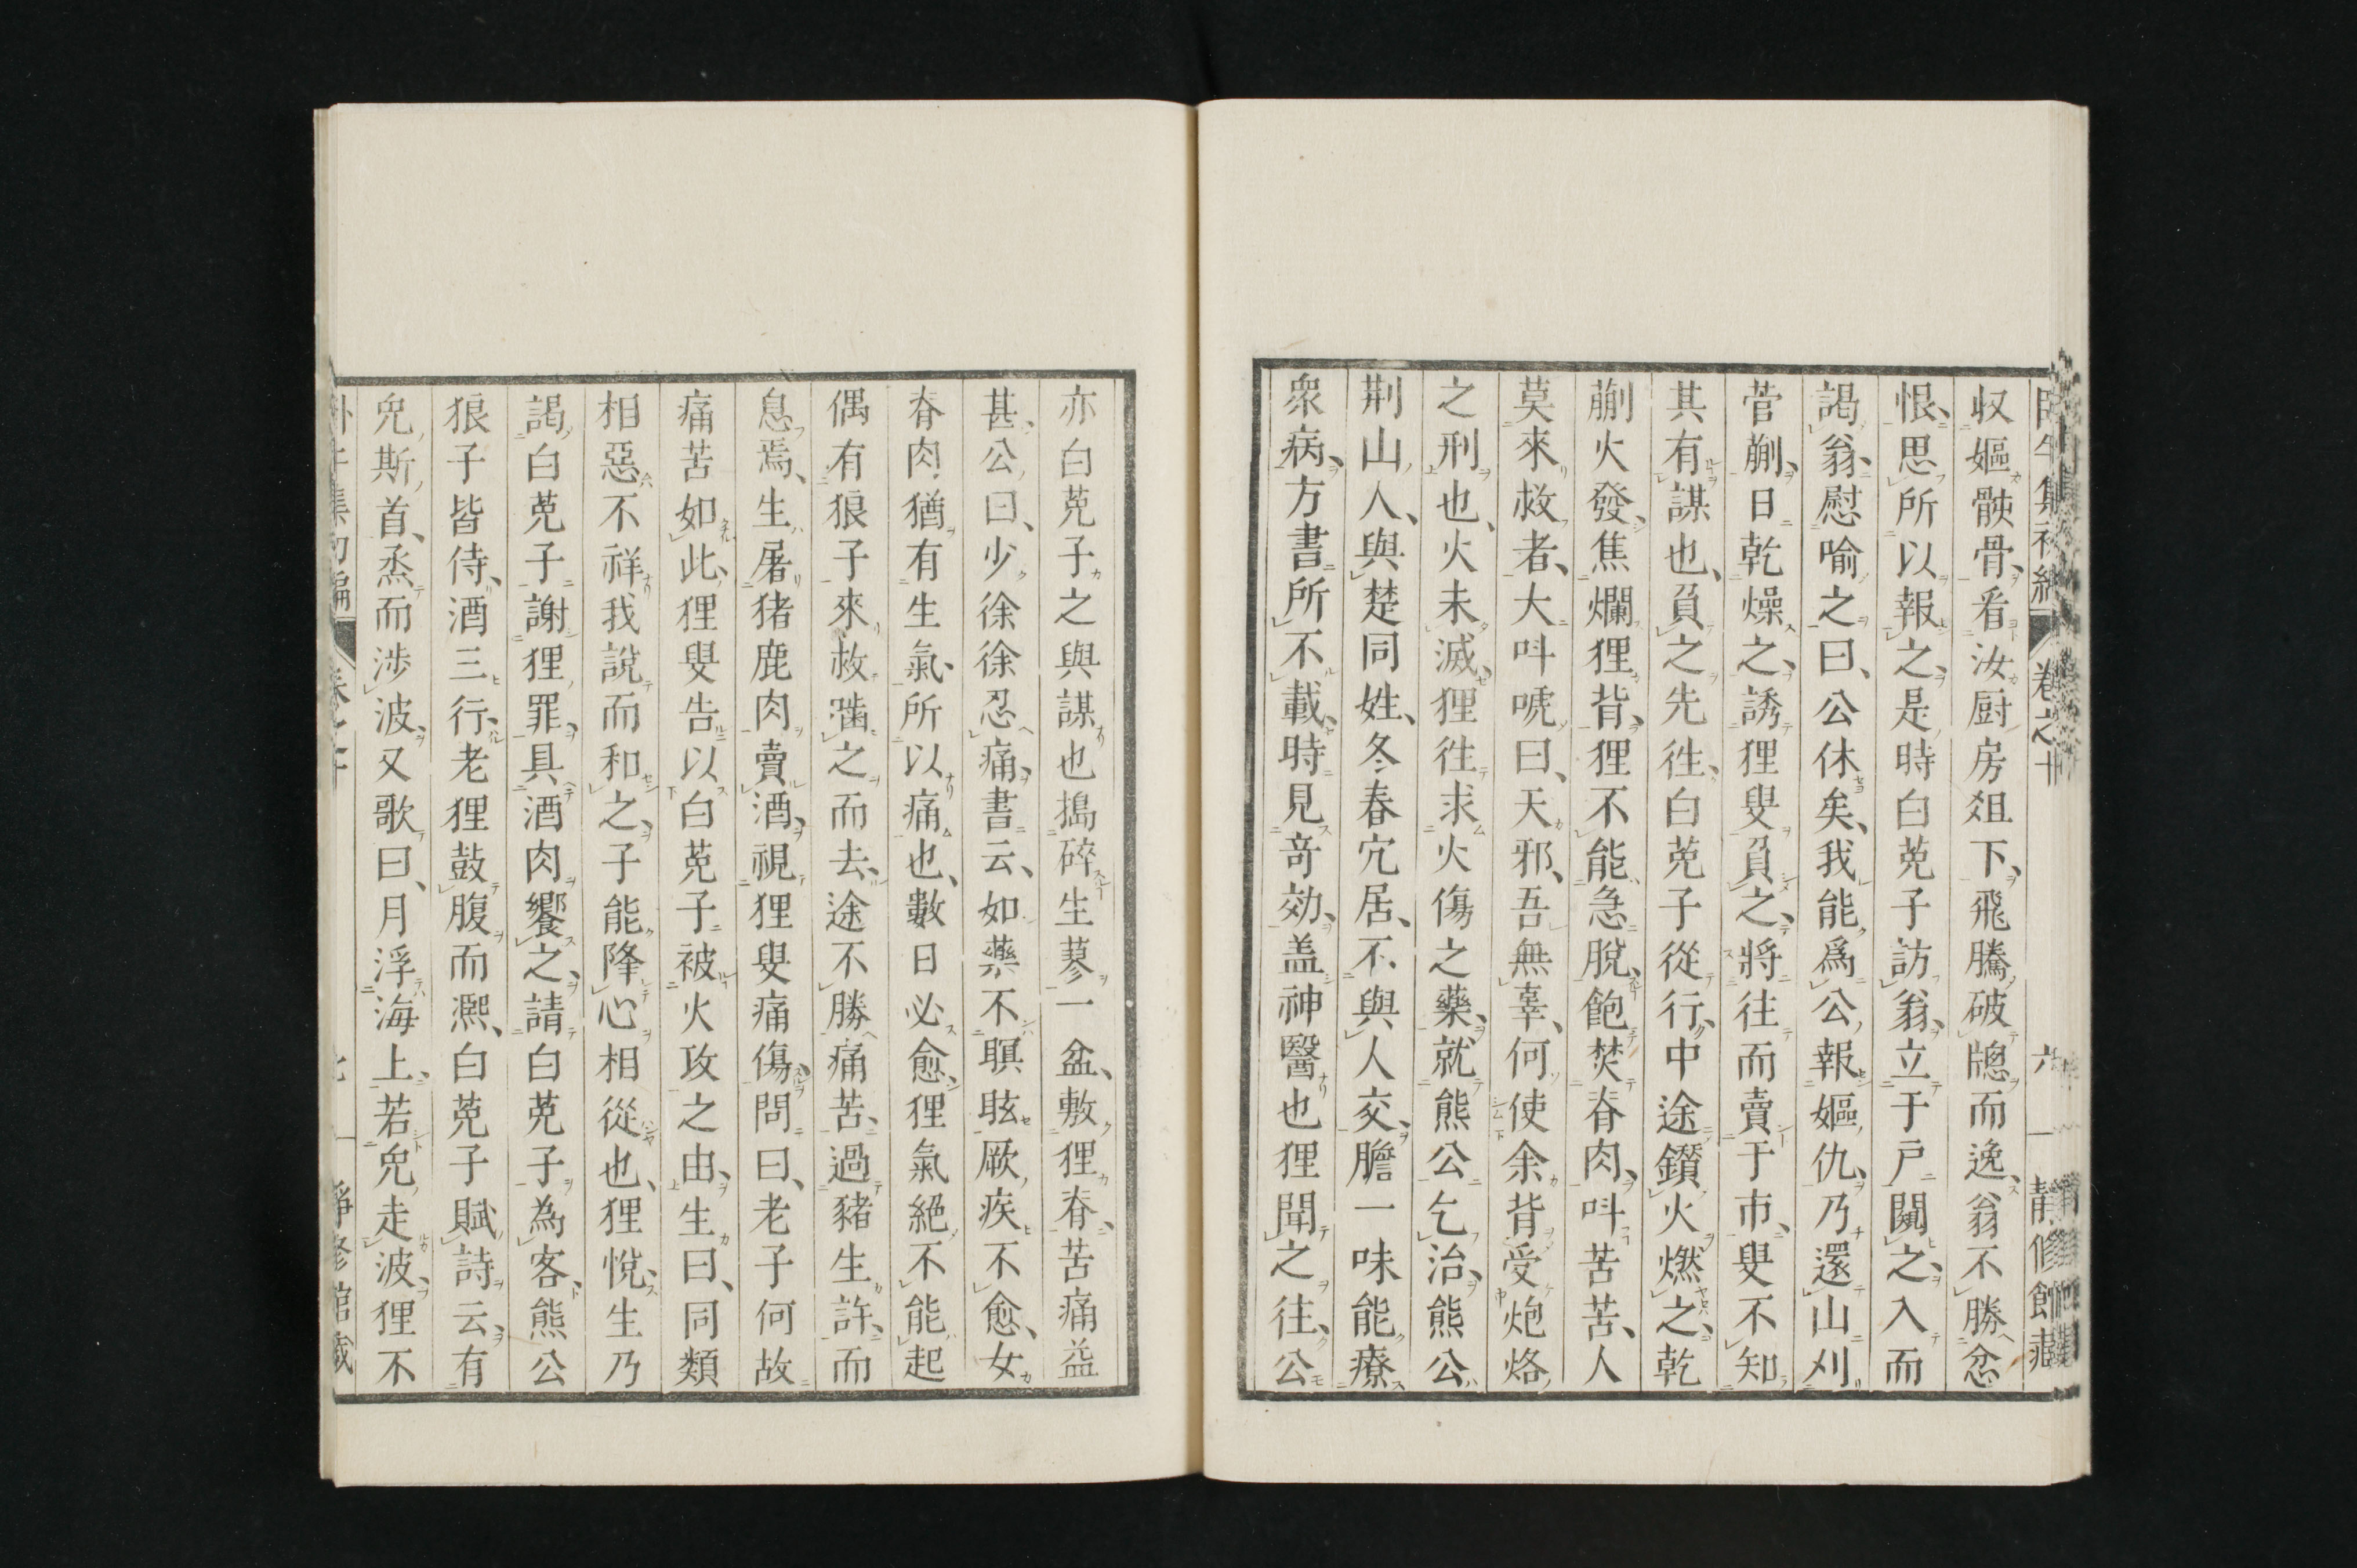 収嫗骸骨看汝厨房爼下飛騰破牕而逸翁不勝忿
恨思所以報之是時白茺子訪翁立于戸闚之入而
謁翁慰喩之曰公休矣我能爲公報嫗仇乃還山刈
菅蒯日乾燥之誘狸叟負之將往而賣于市叟不知
其有謀也負之先徃白茺子從行中途鑚火燃之乾
蒯火發焦爛狸背狸不能急脫飽焚脊肉呌苦苦人
莫來救者大呌唬曰天邪吾無辜何使余背受炮烙
之刑也火未滅狸徃求火傷之藥就熊公乞治熊公
荆山人與楚同姓冬春穴居不與人交膽一味能療
衆病方書所不載時見竒効盖神醫也狸聞之往公
亦白茺子之與謀也搗碎生蓼一盆敷狸脊苦痛益
甚公曰少徐徐忍痛書云如藥不瞑眩厥疾不愈女
脊肉猶有生氣所以痛也數日必愈狸氣絕不能起
偶有狼子來救嚙之而去途不勝痛苦過豬生許而
息焉生屠猪鹿肉賣酒視狸叟痛傷問曰老子何故
痛苦如此狸叟告以白茺子被火攻之由生曰同類
相惡不祥我說而和之子能降心相從也狸悅生乃
謁白茺子謝狸罪具酒肉饗之請白茺子為客熊公
狼子皆侍酒三行老狸鼓腹而凞白茺子賦詩云有
兔斯首烝而涉波又歌曰月浮海上若兔走波狸不
卷之十
六
靜修館藏